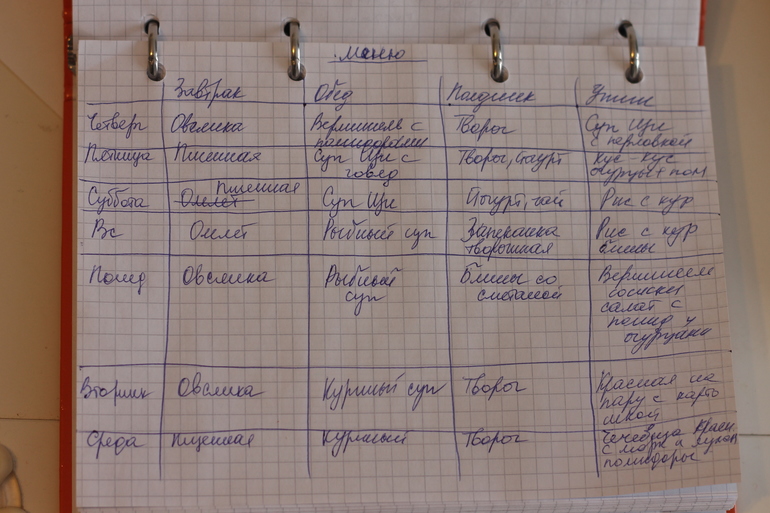 Меню
Завтрак Обед Полдник Ужин
Четверг Овсянка Вермишель с Творог Суп Щи
помидорами с перловкой
Пятница Пшенная Суп Щи с Творог, йогурт Кус-кус
говед огурцы + пом
Пшенная
Суббота Омлет Суп Щи Йогурт, чай Рис с кур
Вс Омлет Рыбный суп Запеканка Рис с кур
творожная блины
Понед Овсянка Рыбный Блины со Вермишель
суп сметаной сосиски
салат с
помид и
огурцами
Вторник Овсянка Куриный суп Творог Красная на
пару с карто
шкой
Среда Пшенная Куриный Творог Чечевица красн
с морк и луком
помидоры